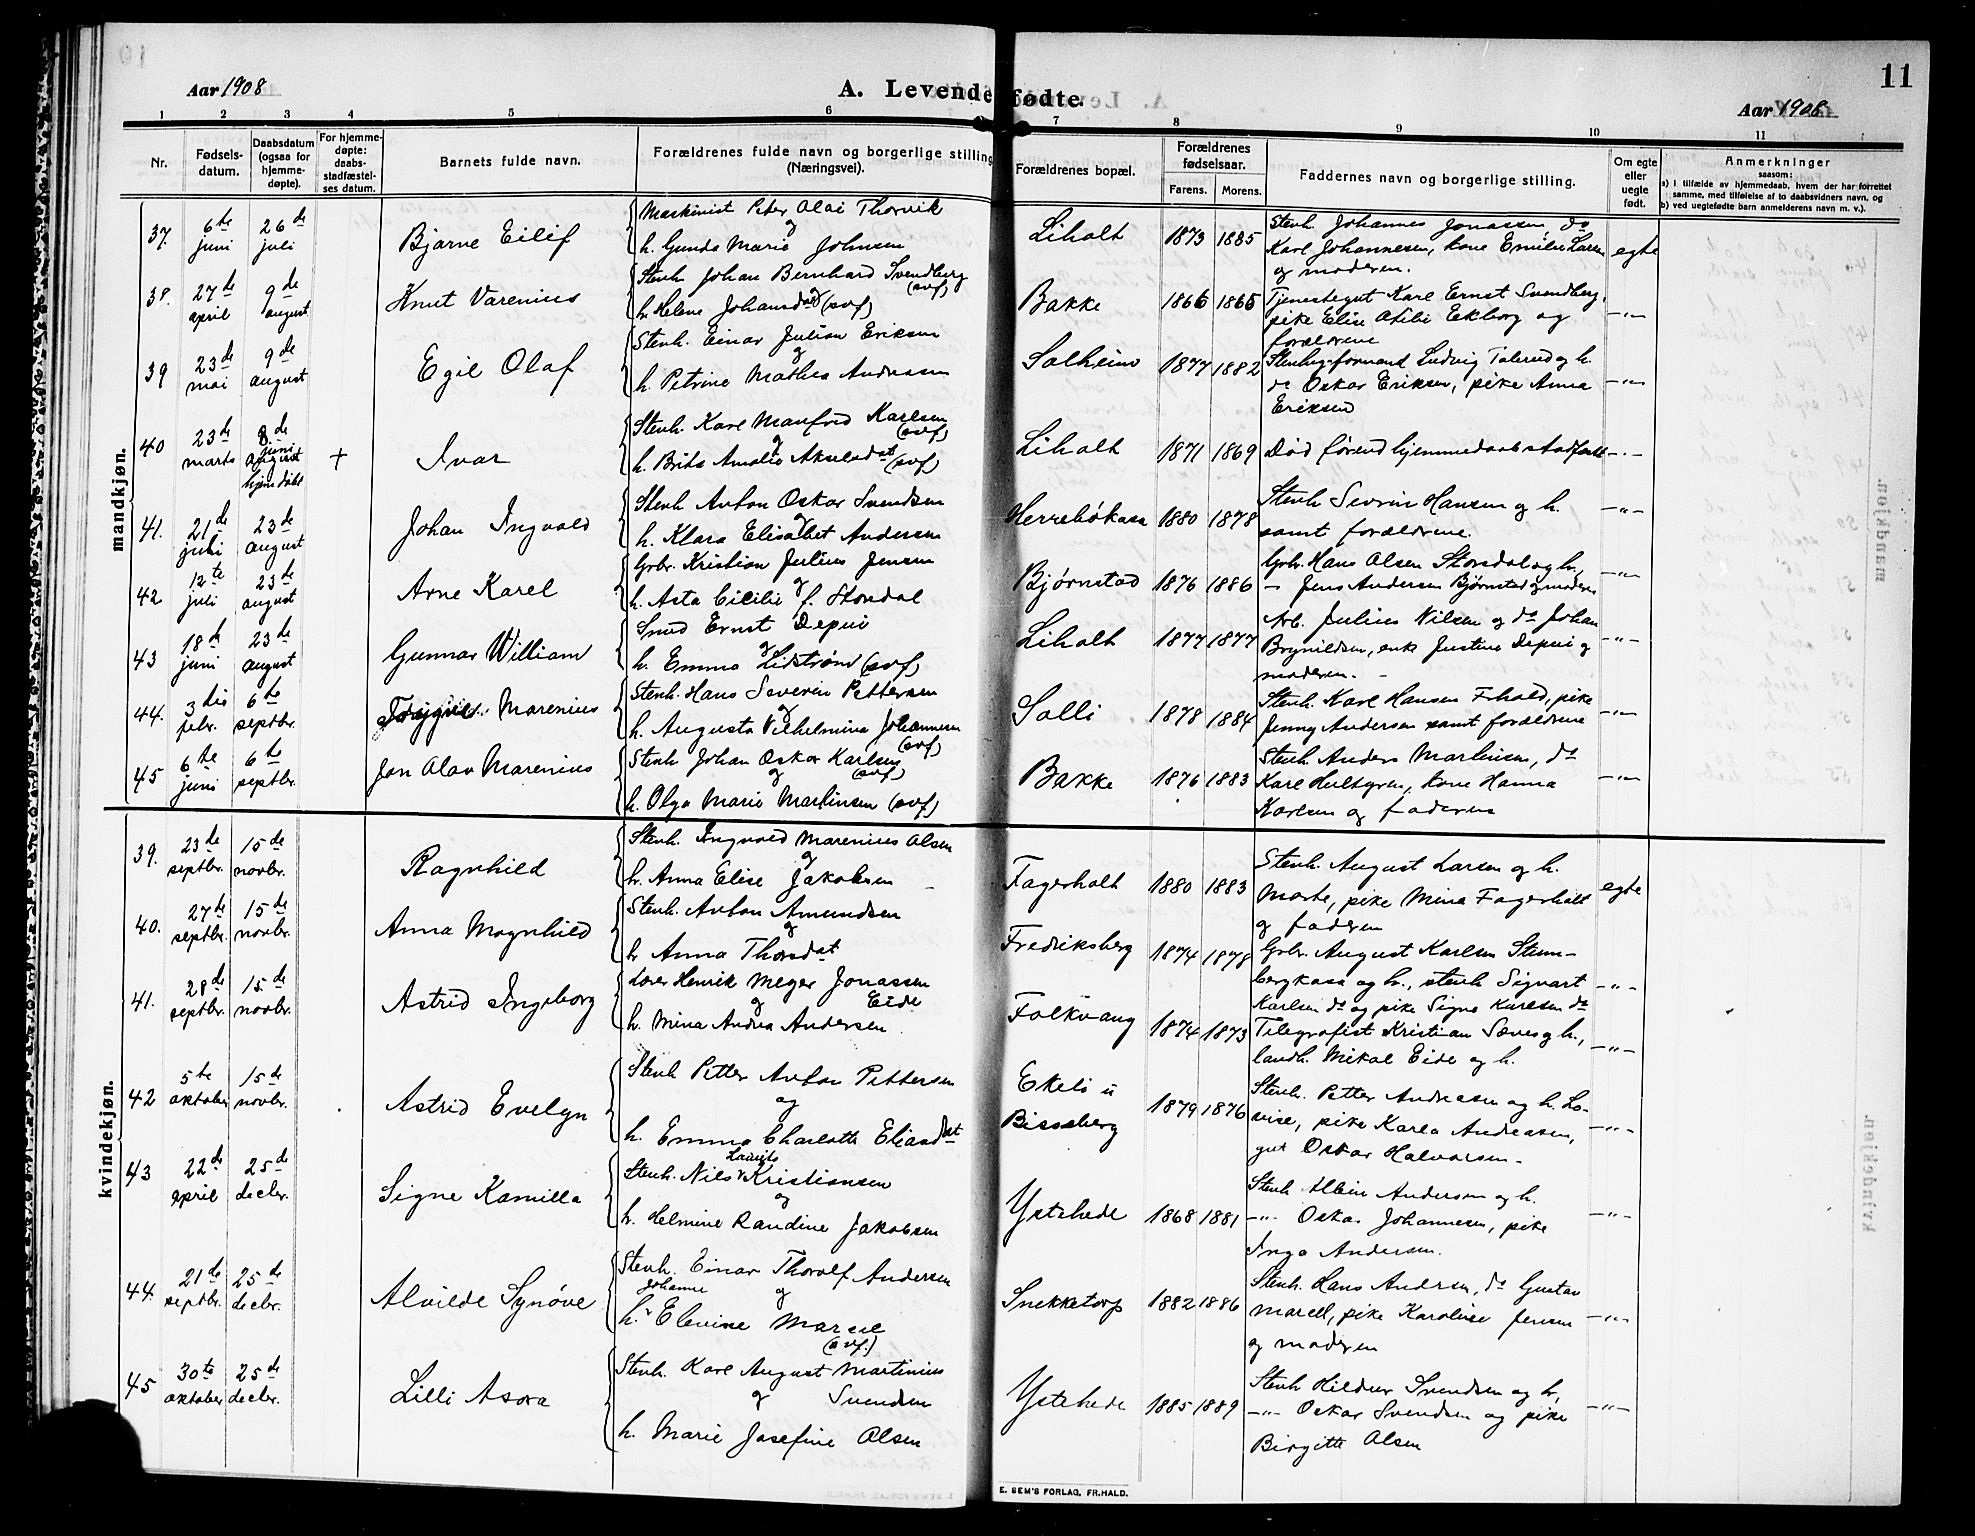 Aar 1908
A. Levendefødte.
Aar 1908
11
1 2 3 4 5 6 7 8 9 10 11
Nr.
Fødsels-
datum.
Daabsdatum
(ogsaa for
hjemme-
døpte).
For hjemme-
døpte:
daabs-
stadfæstel-
ses datum.
Barnets fulde navn.
Forældrenes fulde navn og borgerlige stilling
(Næringsvei).
Forældrenes bopæl.
Forældrenes
fødselsaar.
Farens. Morens.
Faddernes navn og borgerlige stilling.
Om egte
eller
uegte
født.
Anmerkninger
saasom:
a) I tilfælde av hjemmedaab, hvem der har forrettet
samme, med tilføielse af to daabsvidners navn, og
b) ved uegtefødte barn anmelderens navn m. v.).
mandkjøn.
37. 6te juni 26de juli
Bjarne Eilif
Maskinist Peter Olai Thorvik
og
h. Gunda Marie Johnsen
Liholt 1873 1885
Stenh. Johannes Jonassen, do
Karl Johannesen, kone Emilie Larsen
og moderen.
egte
38. 27de april 9de august
Knut Varenius
Stenh. Johan Bernhard Svendberg
(svf)
h. Helene Johansdat (svf)
Bakke 1866 1865
Tjenestegut Karl Ernst Svendberg,
pike Elise Otilie Ekberg og
forældrene
-"-
39 23de mai 9de august
Egil Olaf
Stenh. Einar Julian Eriksen
og
h. Petrine Mathea Andresen
Solheim 1877 1882
Stenhugformand Ludvig Tolerud og h.
do Oskar Eriksen, pike Anna
Eriksen
-"-
40 23de marts 8de juni august hjemdøbt
+
Ivar
Stenh. Karl Manfred Karlsen
(svf)
og
h. Brita Amalia Akselsdat (svf)
Liholt 1871 1869
Død førend hjemmedaab stadfæst
-"-
41. 21de juli 23de august
Johan Ingvald
Stenh Anton Oskar Svendsen
og
h. Klara Elisabet Andersen
Herrebøkasa 1880 1878
Stenh Sevrin Hansen og h.
samt forældrene.
-"-
42 12te juli 23de august
Arne Karel
Grbr. Kristian Julius Jensen
og
h. Asta Cicilie f. Stordal
Bjørnstad 1876 1886
Grbr. Hans Olsen Stordal og h.,
- Jens Andersen Bjørnstad og moderen
-"-
43 18de juni 23de august
Gunnar William
Smed Ernst Depui
og
h. Emma Lidstrøm (svf)
Liholt 1877 1877
Arb. Julius Nilsen og do Johan
Brynildsen, enke Justine Depui og
moderen.
-"-
44. 3die febr. 6te septbr.
Marenius
Stenh. Hans Severin Pettersen
og
h. Augusta Vilhelmina Johannesen
(svf)
Solli 1878 1884
Stenh. Karl Hansen Frhald, pike
Jenny Andersen samt forældrene
-"-
45 6te juni 6te septbr.
Jan Olav Marenius
Stenh Johan Oskar Karlsen
(svf)
og
h. Olga Marie Martinsen (svf)
Bakke 1876 1883
Stenh Anders Martinsen, do
Karl Hultgren, kone Hanna
Karlsen og faderen
-"-
kvindekjøn.
39. 23de septbr. 15de novbr.
Ragnhild
Stenh. Ingvald Marenius Olsen
og
h. Anna Elise Jakobsen
Fagerholt 1880 1883
Stenh. August Larsen og h.
Marte, pike Mina Fagerholt
og faderen
egte
40. 27de septbr. 15de novbr.
Anna Magnhild
Stenh. Anton Amundsen
og
h Anna Thorsdat
Fredriksberg 1874 1878
Grbr. August Karlsen Stum-
bergkasa og h., stenh Sigvart
Karlsen do og pike Signe Karlsen do
-"-
41. 28de septbr. 15de novbr.
Astrid Ingeborg
Lærer Henrik Meyer Jonassen
og Eide
h. Mina Andrea Andersen.
Folkvang 1874 1873
Telegrafist Kristian Sæves og h.,
landh. Mikal Eide og h.
-"-
42 5te oktober 15de novbr.
Astrid Evelyn
Stenh Petter Anton Pettersen
og
h. Emma Charlotte Eliasdat
Ekeli u
Bisseberg
1879 1876
Stenh. Petter Andreasen og h. Lo-
vise, pike Karla Andreasen,
gut Oskar Halvorsen.
-"-
43 22de april 25de decbr.
Signe Kamilla
Lauritz
Stenh. Nils Kristiansen
og
h. Helmine Randine Jakobsen
Ystehede 1868 1881
Stenh Albin Andersen og h.
-"- Oskar Johannesen, pike
Inga Andersen.
-"-
44. 21de septbr. 25de decbr.
Alvilde Synøve
Stenh. Einar Thorolf Andersen
Johanne og
h. Elevine Marcel
(svf.)
Snekketorp 1882 1886
Stenh. Hans Andersen, do Gustav
Marcel, pike Karoline Jensen
og moderen
-"-
45 30te oktober 25de decbr.
Lilli Asora
Stenh. Karl August Martinius
og Svendsen
h. Marie Josefine Olsen
Ystehede 1885 1889
Stenh Hildur Svendsen og h,
-"- Oskar Svendsen og pike
Birgitte Olsen
-"-
E. SEM'S FORLAG, FR.HALD.